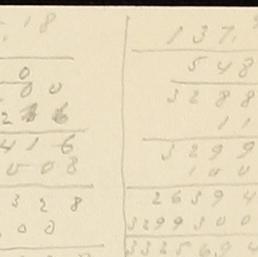 .18
0
00
2
416
008
328
00
137.
548
3288
11
3299
100
26394
3299300
3325694